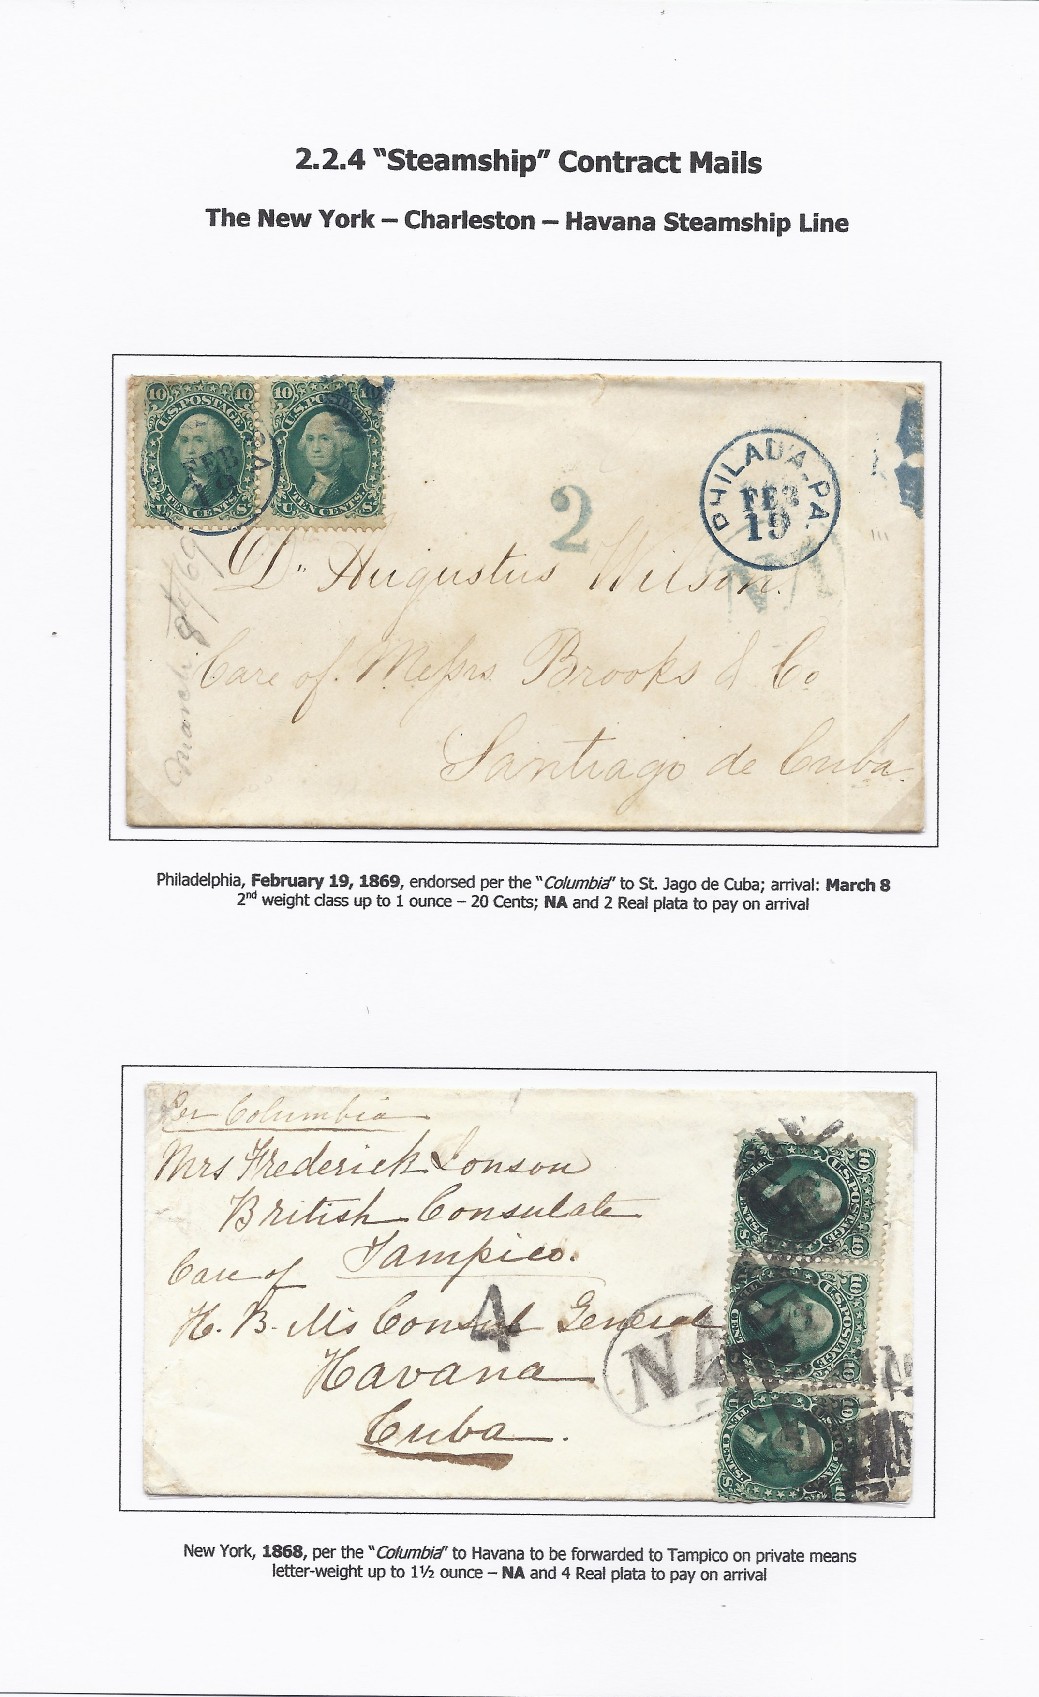 2.2.4 “Steamship” Contract Mails
The New York – Charleston – Havana Steamship Line
10 10
10 10
U.S. POSTAGE
U.S. POSTAGE
FEB
19
TEN CENTS
TEN CENTS
2
PHILAD'A. PA.
FEB
19
NA
Dr. Augustus Wilson.
Care of. Messrs Brooks & Co
Santiago de Cuba.
March 8th/69
Philadelphia, February 19, 1869, endorsed per the “Columbia” to St. Jago de Cuba; arrival: March 8
2nd weight class up to 1 ounce – 20 Cents; NA and 2 Real plata to pay on arrival
Per Columbia
Mrs Frederick Jonson
British Consulate
Tampico.
Care of
H. B. Ms Consul General
Havana
Cuba.
4
NA
10
U.S. POSTAGE
10
10
U.S. POSTAGE
10
10
New York, 1868, per the “Columbia” to Havana to be forwarded to Tampico on private means
letter-weight up to 1½ ounce – NA and 4 Real plata to pay on arrival